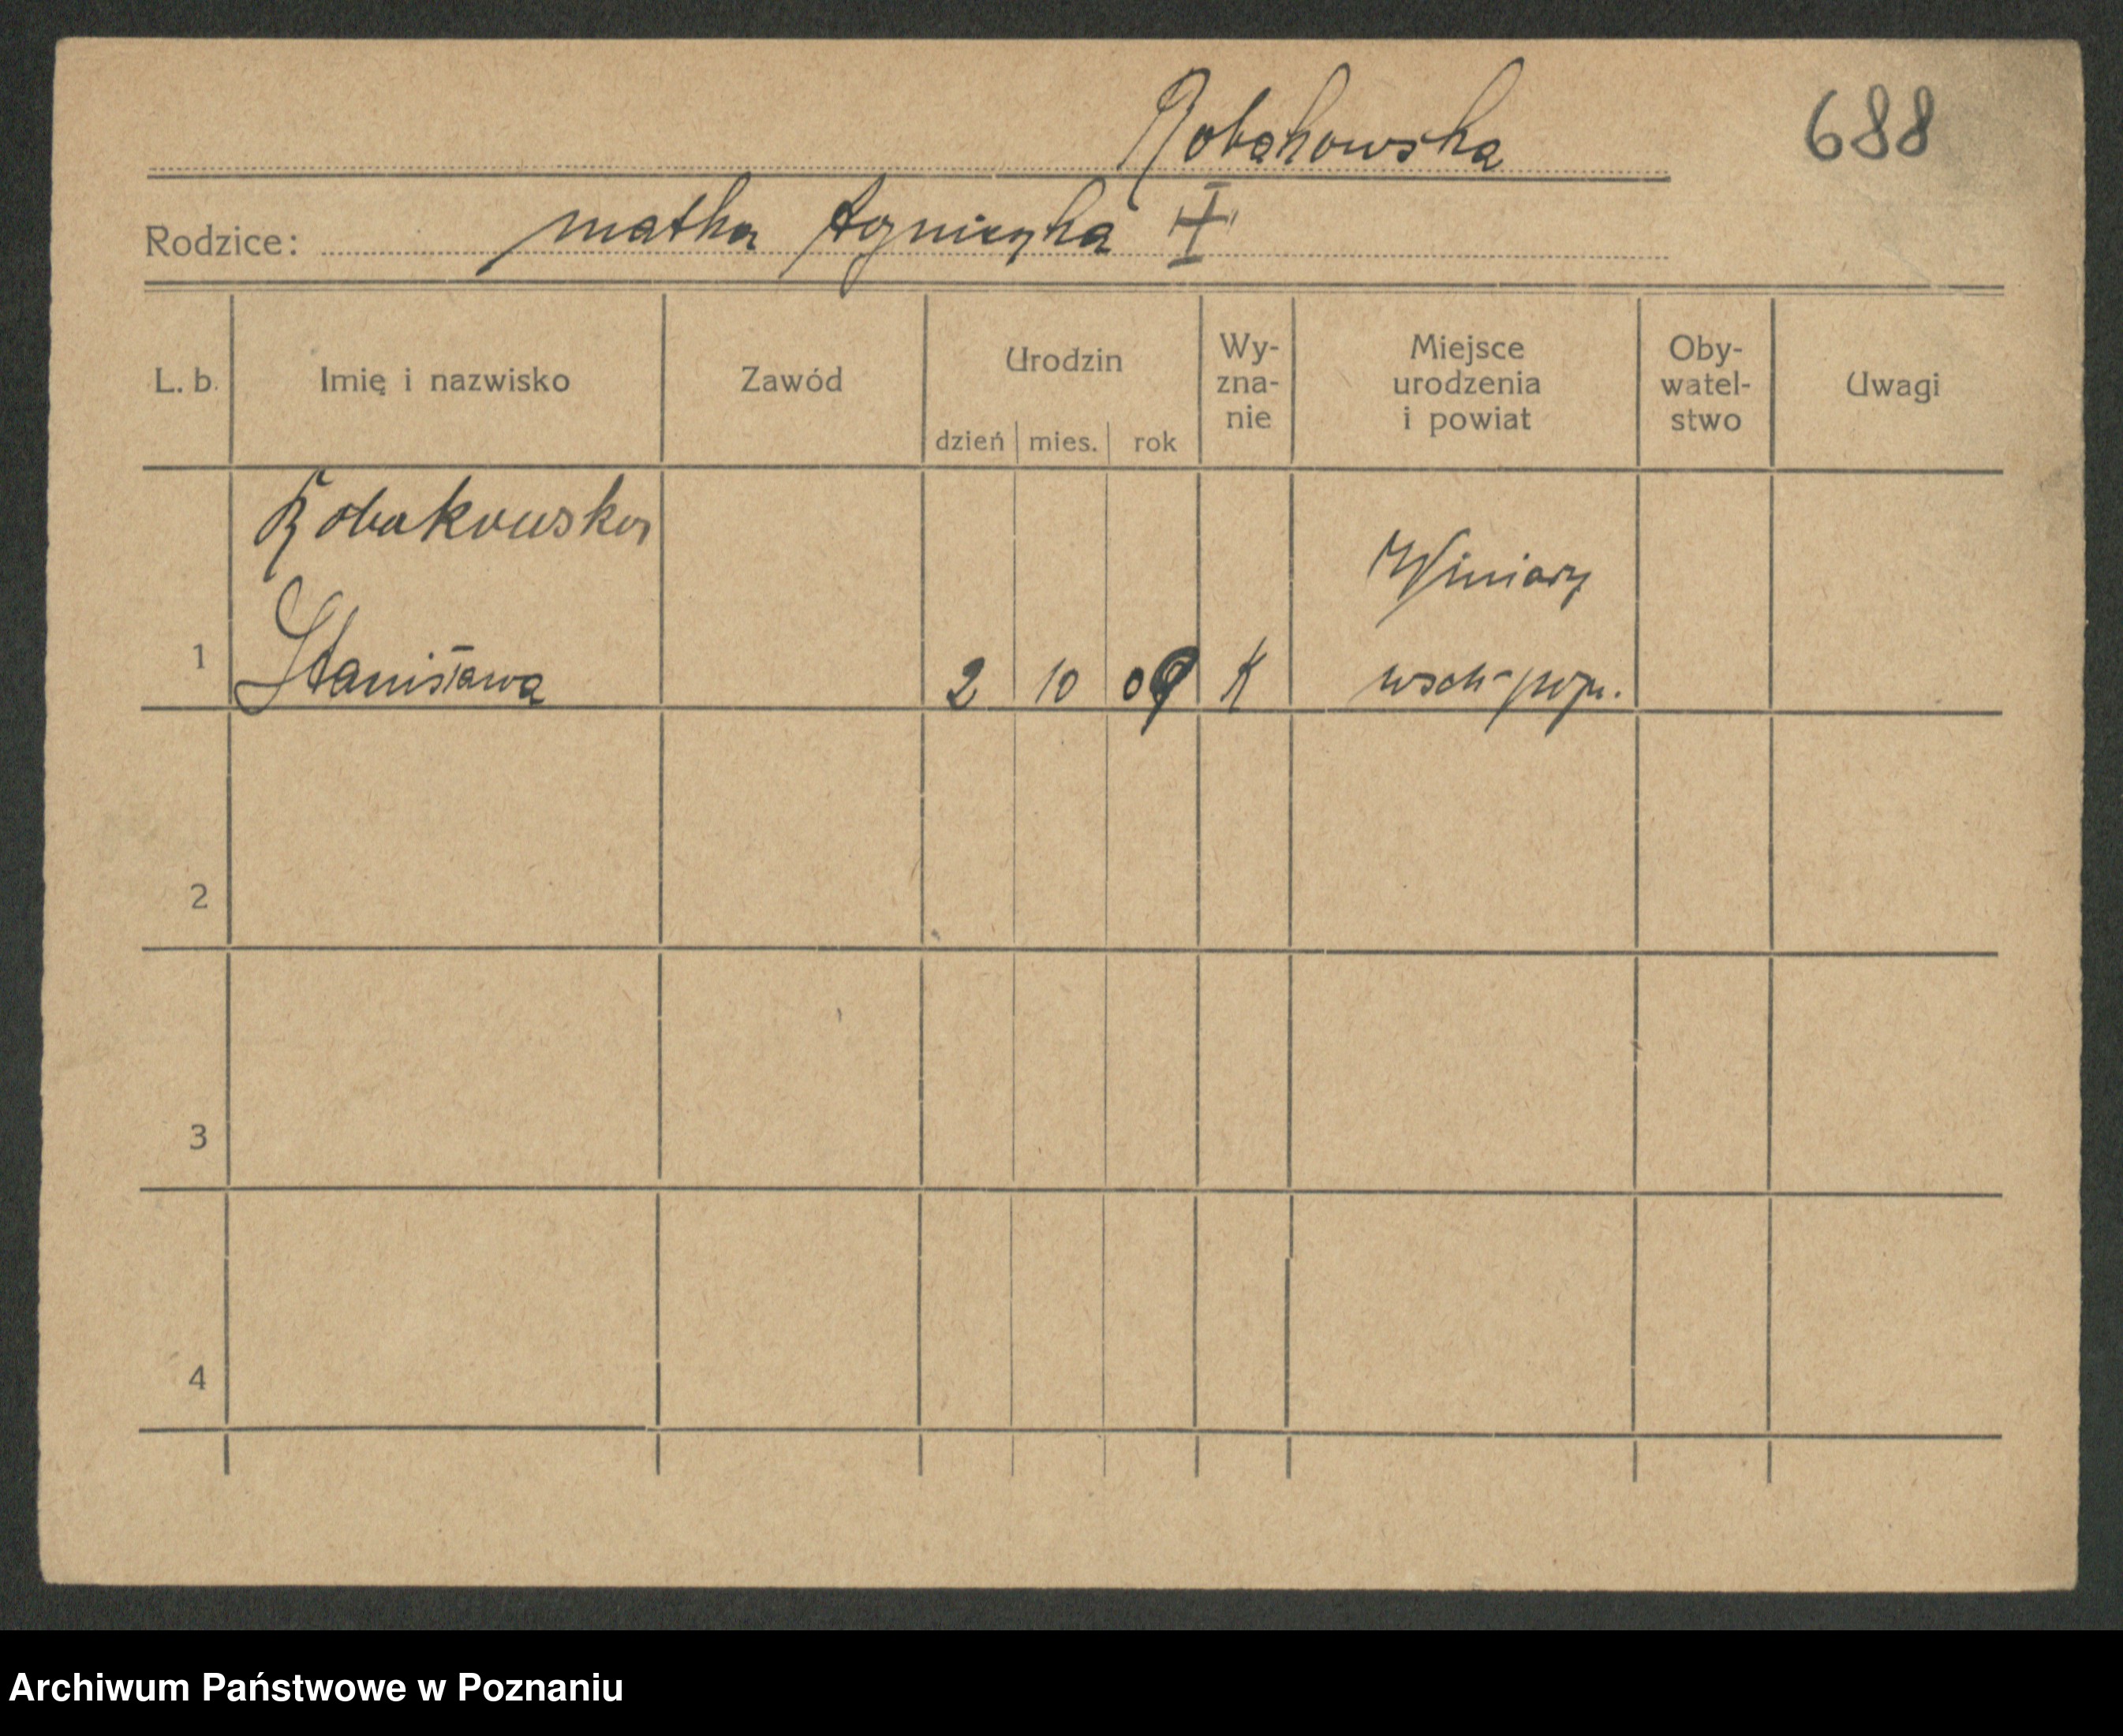 Robakowska
688
Rodzice: matka Agnieszka
L. b. Imię i nazwisko Zawód Urodzin dzień mies. rok Wy-zna-nie Miejsce urodzenia i powiat Oby-watel-stwo Uwagi
Robakowska
Winiary
1 Stanisława 2 10 09 K wsch-pozn.
2
3
4
Archiwum Państwowe w Poznaniu